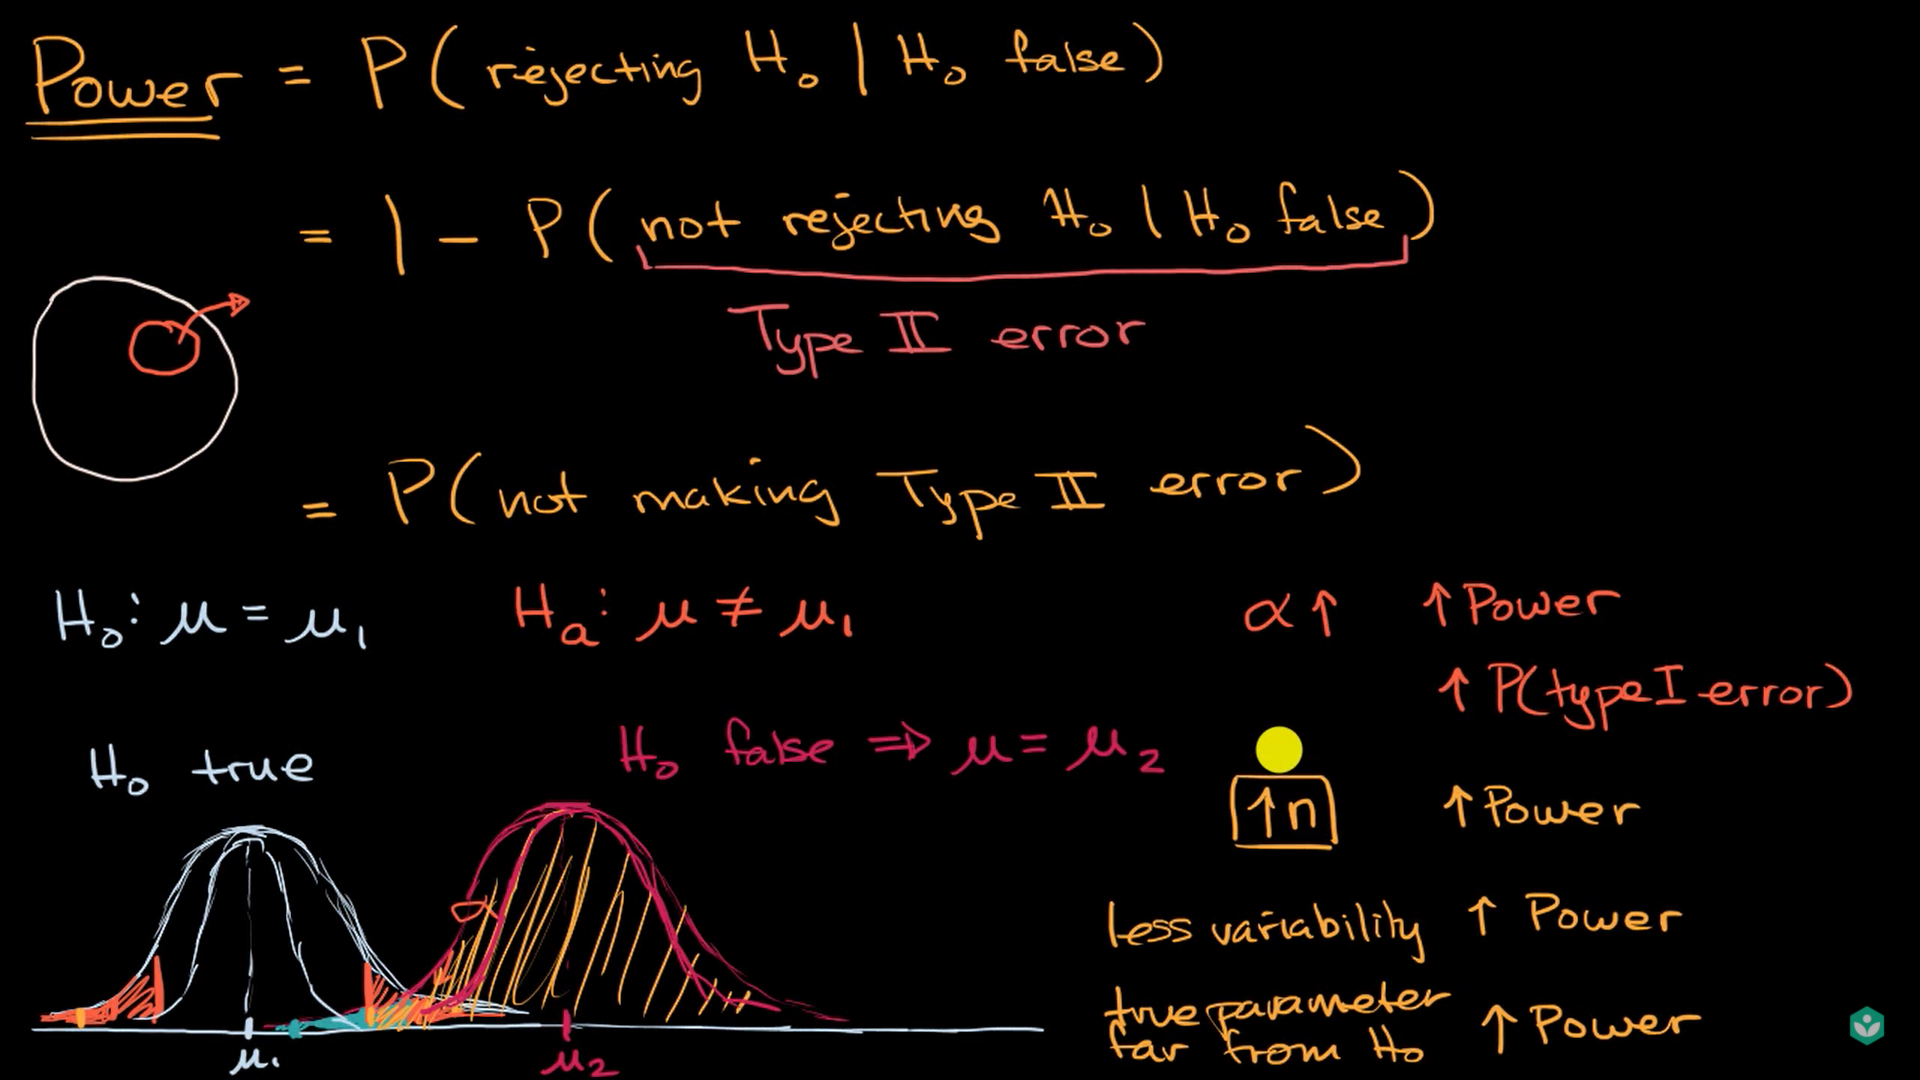 Power = P(rejecting H₀ | H₀ false)
= 1 - P(not rejecting H₀ | H₀ false)
Type II error
= P(not making Type II error)
H₀: μ = μ₁ Hₐ: μ ≠ μ₁
α↑ ↑Power
↑P(type I error)
H₀ true
H₀ false ⇒ μ = μ₂
↑n ↑Power
α
less variability ↑ Power
true parameter
far from H₀ ↑ Power
μ₁ μ₂